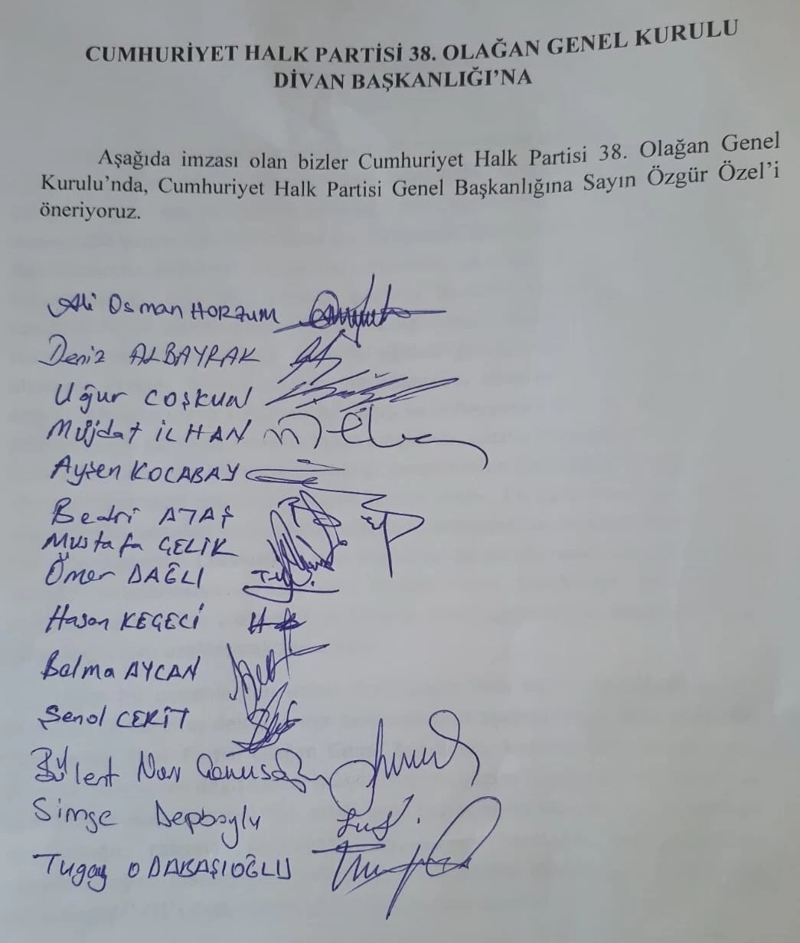 CUMHURİYET HALK PARTİSİ 38. OLAĞAN GENEL KURULU
DİVAN BAŞKANLIĞI'NA
Aşağıda imzası olan bizler Cumhuriyet Halk Partisi 38. Olağan Genel
Kurulu'nda, Cumhuriyet Halk Partisi Genel Başkanlığına Sayın Özgür Özel'i
öneriyoruz.
Ali Osman HORZUM
Deniz ALBAYRAK
Uğur COŞKUN
Müjdat İLHAN
Ayşen KOCABAY
Bedri ATAŞ
Mustafa ÇELİK
Ömer DAĞLI
Hasan KEÇECİ
Belma AYCAN
Şenol CERİT
Bülent Nuri
Simge Depboylu
Tugay ODABAŞIOĞLU